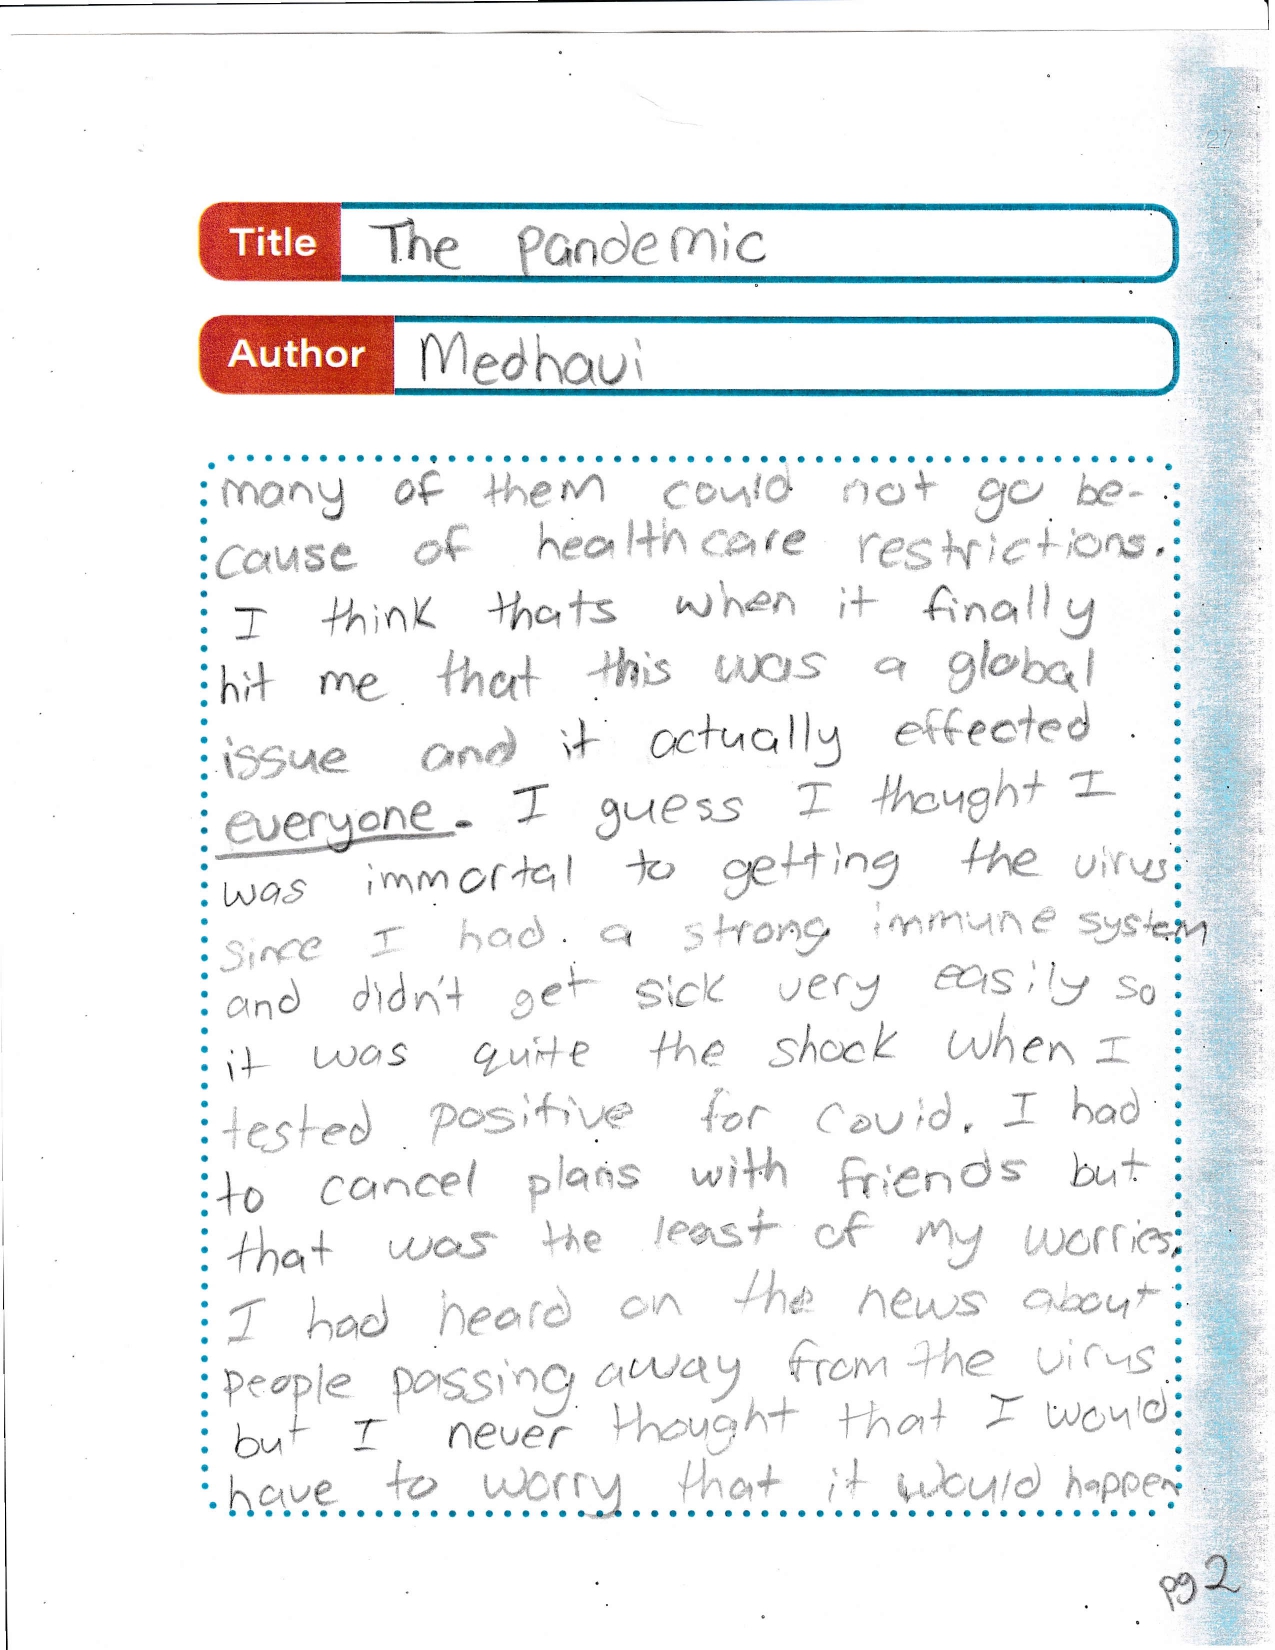 27
Title The pandemic
Author Medhavi
many of them could not go be-
cause of healthcare restrictions.
I think thats when it finally
hit me that this was a global
issue and it actually effected
everyone. I guess I thought I
was immortal to getting the virus
since I had a strong immune system
and didn't get sick very easily so
it was quite the shock when I
tested positive for Covid. I had
to cancel plans with friends but
that was the least of my worries.
I had heard on the news about
people passing away from the virus
but I never thought that I would
have to worry that it would happen
pg 2